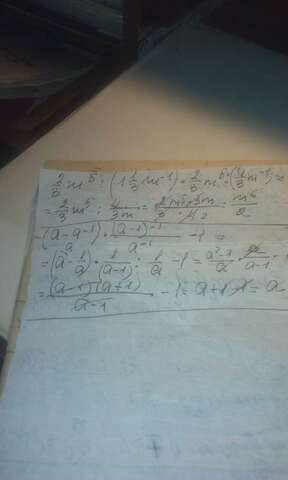 2/3 m⁵ : (1 1/3 m⁻¹) = 2/3 m⁵ : (4/3 m⁻¹) =
= 2/3 m⁵ : 4/3m = 2m⁵·3m / 3·4₂ = m⁶/2
(a-a⁻¹) · (a-1)⁻¹/a⁻¹ - 1 =
= (a - 1/a) · 1/(a-1) : 1/a - 1 = a²-1/a · a/a-1
= (a-1)(a+1)/a-1 - 1 = a+1-1 = a